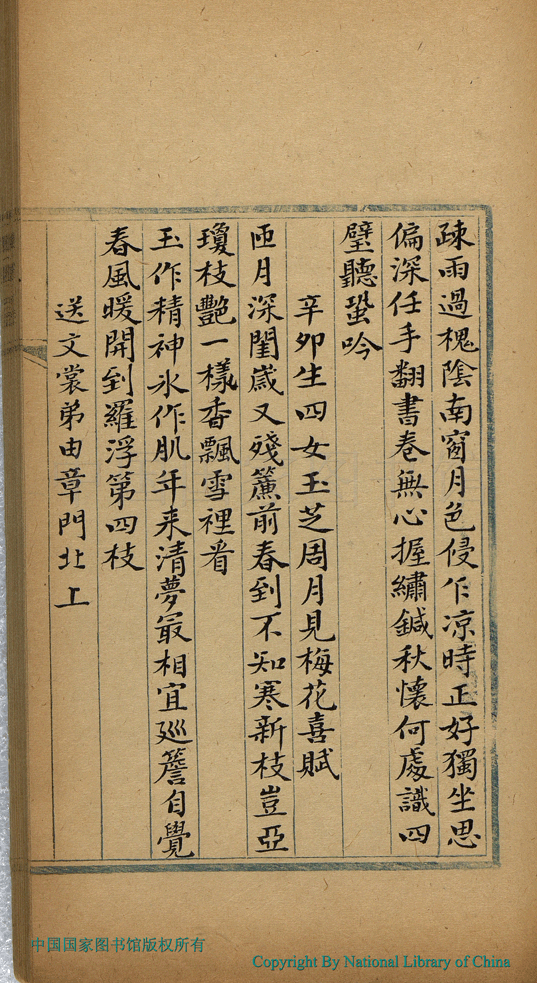 疎雨過槐陰南窗月色侵乍凉時正好獨坐思
偏深任手翻書卷無心握繡鍼秋懷何處識四
壁聽蛩吟
辛卯生四女玉芝周月見梅花喜賦
匝月深閨歲又殘簾前春到不知寒新枝豈亞
瓊枝艷一樣香飄雪裡看
玉作精神氷作肌年来清夢最相宜廵簷自覺
春風暖開到羅浮第四枝
送文裳弟由章門北上
中国国家图书馆版权所有
Copyright By National Library of China